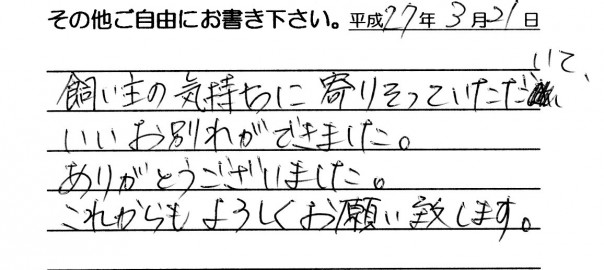 その他ご自由にお書き下さい。平成27年3月21日
飼い主の気持ちに寄りそっていただいて、
いいお別れができました。
ありがとうございました。
これからもよろしくお願い致します。